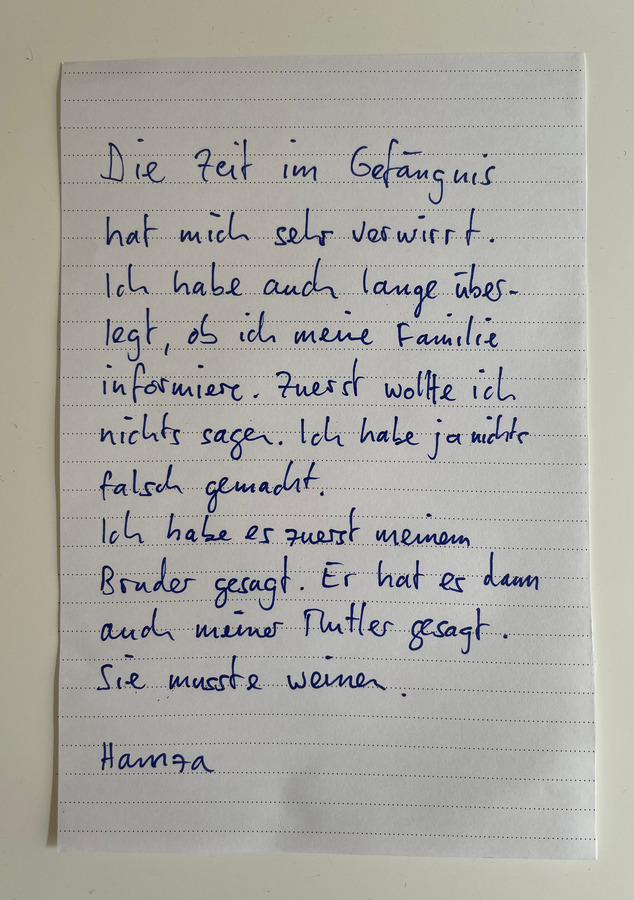 Die Zeit im Gefängnis
hat mich sehr verwirrt.
Ich habe auch lange über-
legt, ob ich meine Familie
informiere. Zuerst wollte ich
nichts sagen. Ich habe ja nichts
falsch gemacht.
Ich habe es zuerst meinem
Bruder gesagt. Er hat es dann
auch meiner Mutter gesagt.
Sie musste weinen.
Hamza